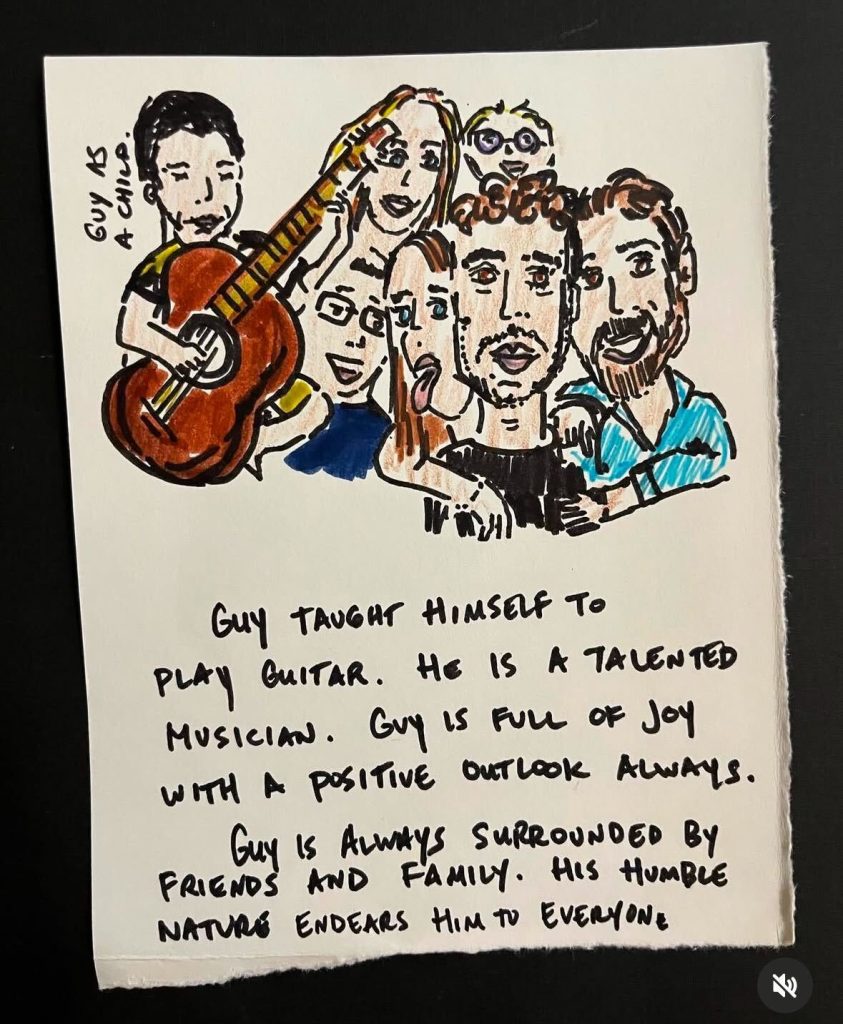 GUY AS
A CHILD.
GUY TAUGHT HIMSELF TO
PLAY GUITAR. HE IS A TALENTED
MUSICIAN. GUY IS FULL OF JOY
WITH A POSITIVE OUTLOOK ALWAYS.
GUY IS ALWAYS SURROUNDED BY
FRIENDS AND FAMILY. HIS HUMBLE
NATURE ENDEARS HIM TO EVERYONE